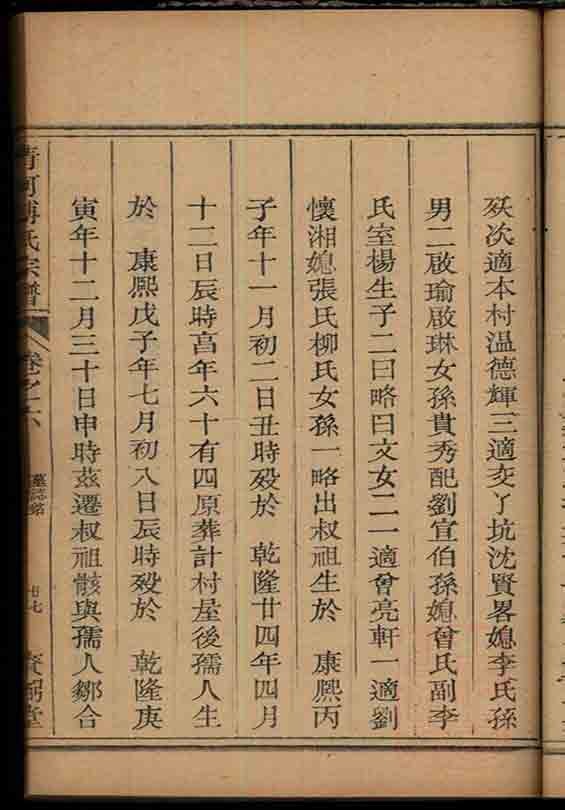 殀次適本村温德輝三適交丫坑沈賢畧媳李氏孫
男二啟瑜啟琳女孫貴秀配劉宣伯孫媳曾氏副李
氏室楊生子二曰略曰文女二一適曾亮軒一適劉
懷湘媳張氏柳氏女孫一略出叔祖生於 康熙丙
子年十一月初二日丑時殁於 乾隆廿四年四月
十二日辰時亯年六十有四原葬計村屋後孺人生
於 康熙戊子年七月初八日辰時殁於 乾隆庚
寅年十二月三十日申時茲遷叔祖骸與孺人鄒合
清河傅氏宗譜 卷之六 墓誌銘 廿七 堂